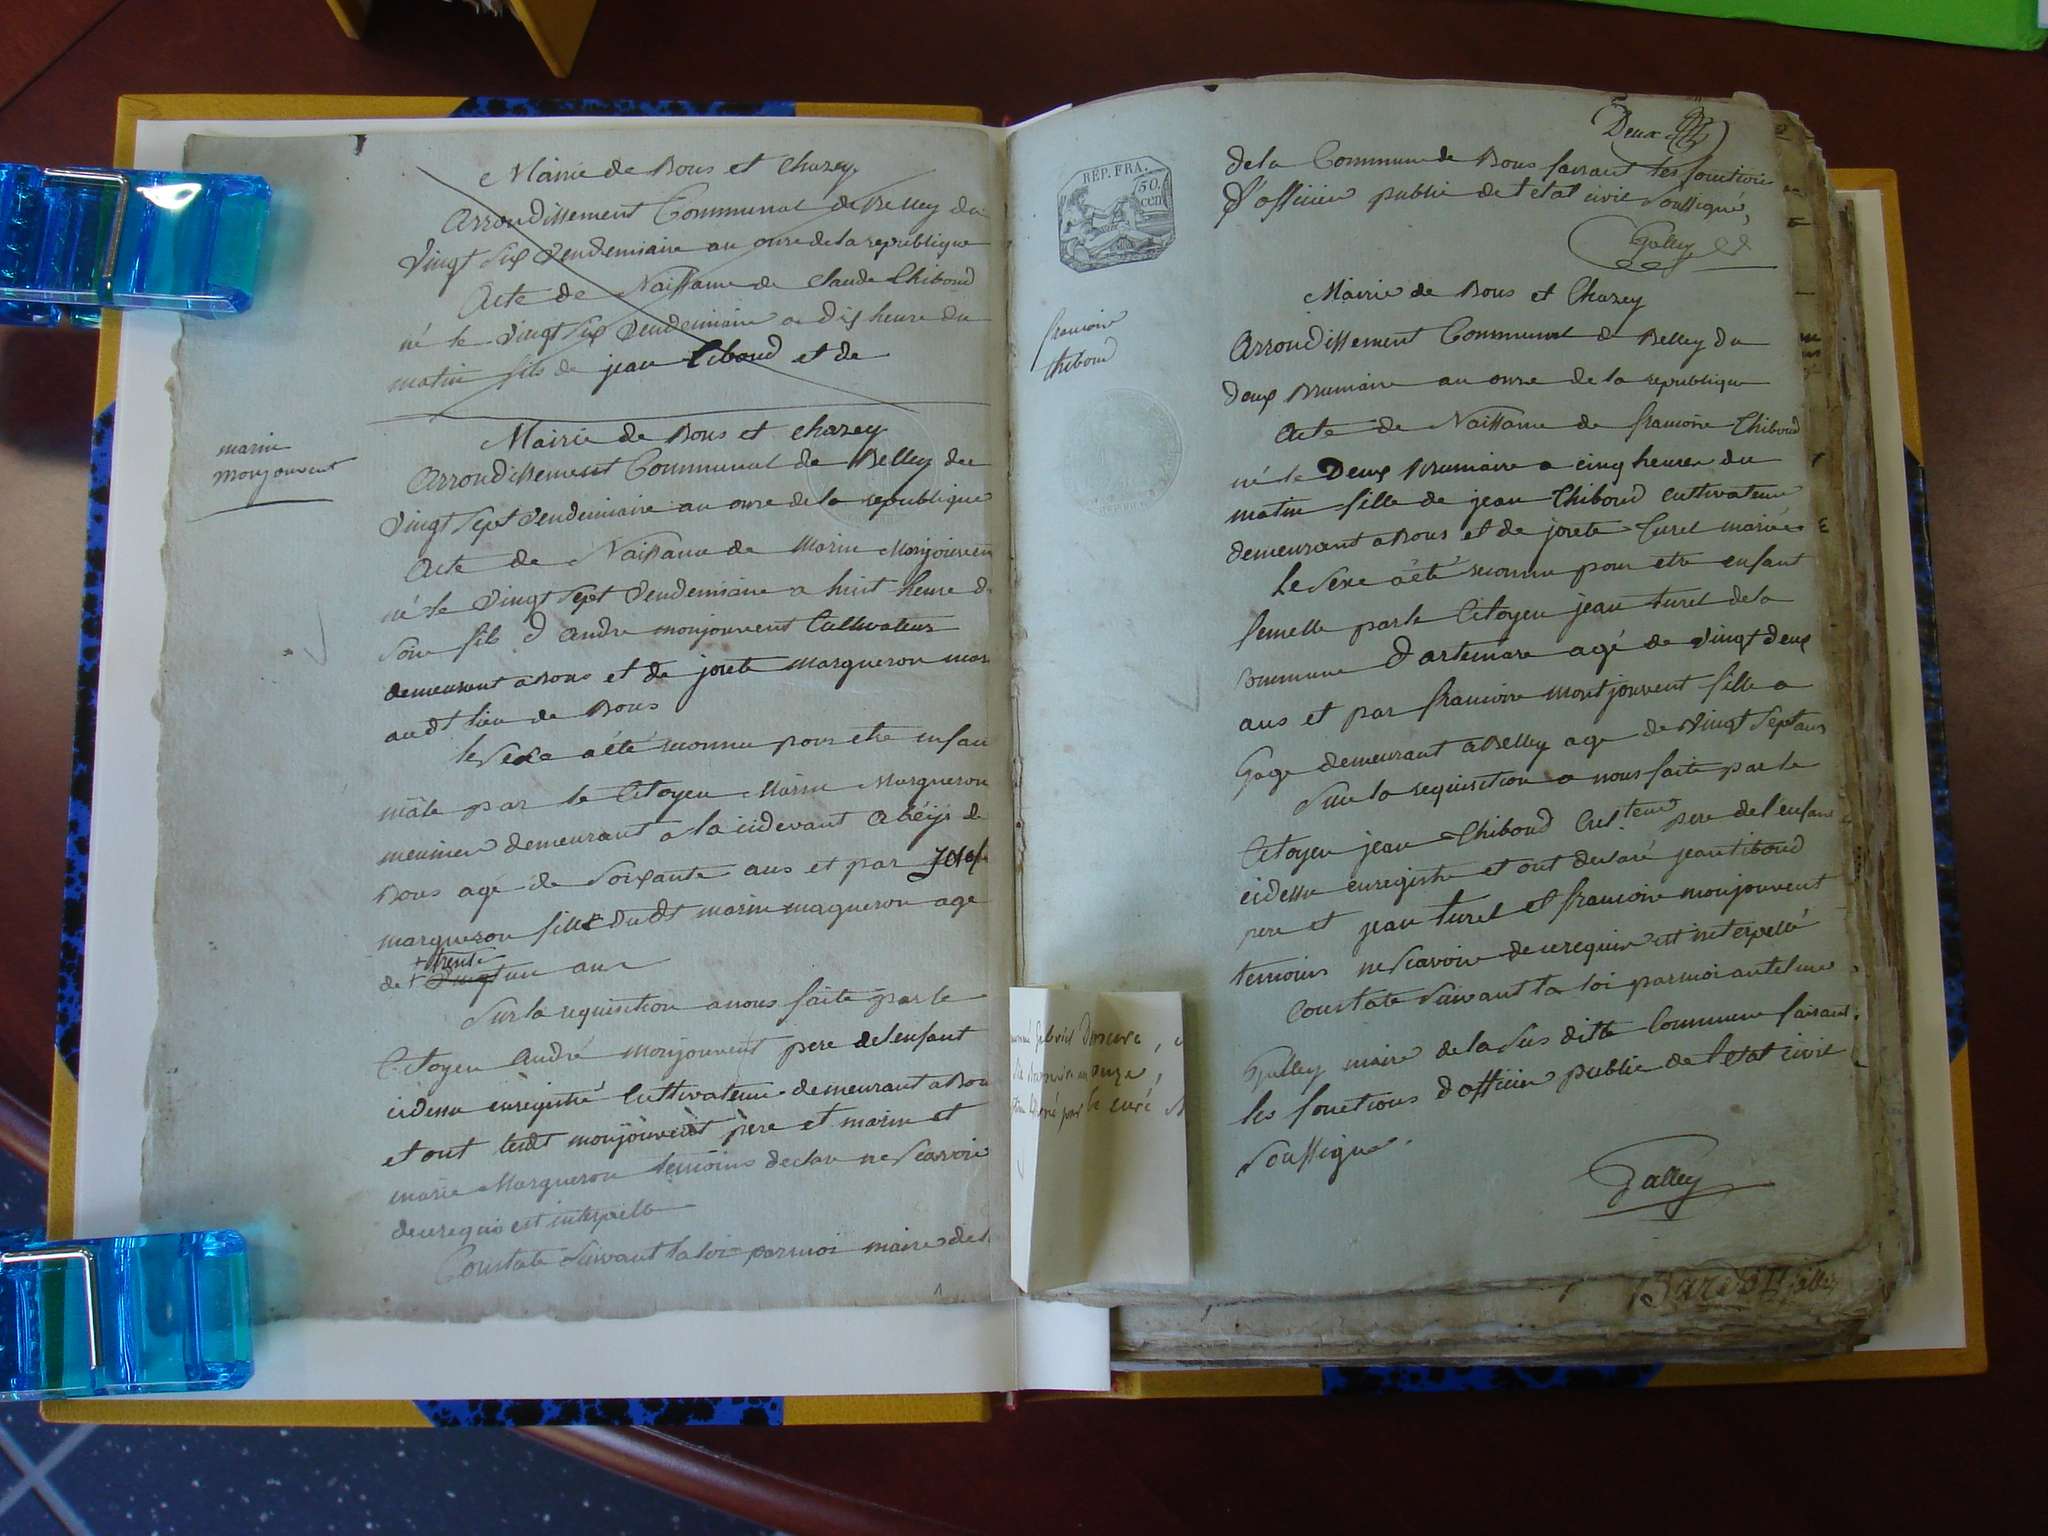 Mairie de Bons et Chazey
Arrondissement Communal de Belley du
vingt six vendemiaire an onze de la republique
Acte de Naissance de Claude Thiboud
né le vingt six vendemiaire a dix heure du
matin fils de jean tiboud et de
marin
monjouvent
Mairie de Bons et Chazey
Arrondissement Communal de Belley du
vingt sept vendemiaire an onze de la republique
Acte de Naissance de Marin Monjouven
né le vingt sept vendemiaire a huit heure d
soire fils d andre monjouvent Cultivateur
demeurant a Bons et de josete marqueron mar
audt lieu de Bons
le sexe a été reconnu pour etre enfan
mâle par le Citoyen Marin Marqueron
meunier demeurant a la cidevant Abéÿe de
Bons agé de soixante ans et par
marqueron fille dudt marin marqueron age
+ trente
de + vingt un ans
Sur la requisition a nous faite par le
Citoyen André monjouvent pere de lenfant
cidessu enregistré Cultivateur demeurant a Bon
et ont ledt monjouvent père et marin et
marie Marqueron temoins declaré ne scavoir
de ce requis est interpellé
Constate suivant la loi par moi maire de l
REP. FRA.
50.
cen
Deux
de la Commune de Bons faisant les fonctions
d'officier public de l'etat civil soussigné,
Galley
francoise
thiboud
Mairie de Bons et Chazey
Arrondissement Communal de Belley du
deux Brumaire an onze de la republique
Acte de Naissance de francoise Thiboud
né le Deux Brumaire a cinq heures du
matin fille de jean Thiboud cultivateur
demeurant a Bons et de josete Turel mariés
Le sexe a été reconnu pour etre enfant
femelle par le Citoyen jean turel de la
commune d'artemare agé de vingt deux
ans et par francoise montjouvent fille a
gage demeurant a Belley age de vingt sept ans
Sur la requisition a nous faite par le
Citoyen jean Thiboud Cult.teur pere de l'enfant
cidessu enregistre et ont declaré jean tiboud
pere et jean turel et francoise monjouvent
temoins ne scavoir de ce requis est interpellé
Constate suivant la loi par moi antelme
Galley maire de la sus ditte Commune faisant
les fonctions d'officier public de l'etat civil
soussigné.
Galley